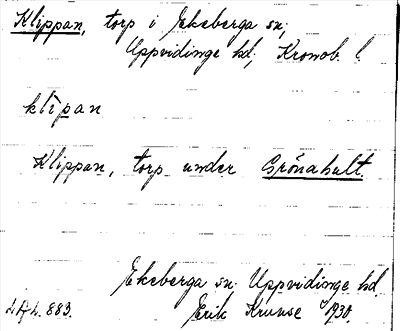 Klippan, torp i Ekeberga sn,
Uppvidinge hd, Kronob. l.
klìpan
Klippan, torp under Grönahult.
Ekeberga sn. Uppvidinge hd.
Erik Kruuse 1930